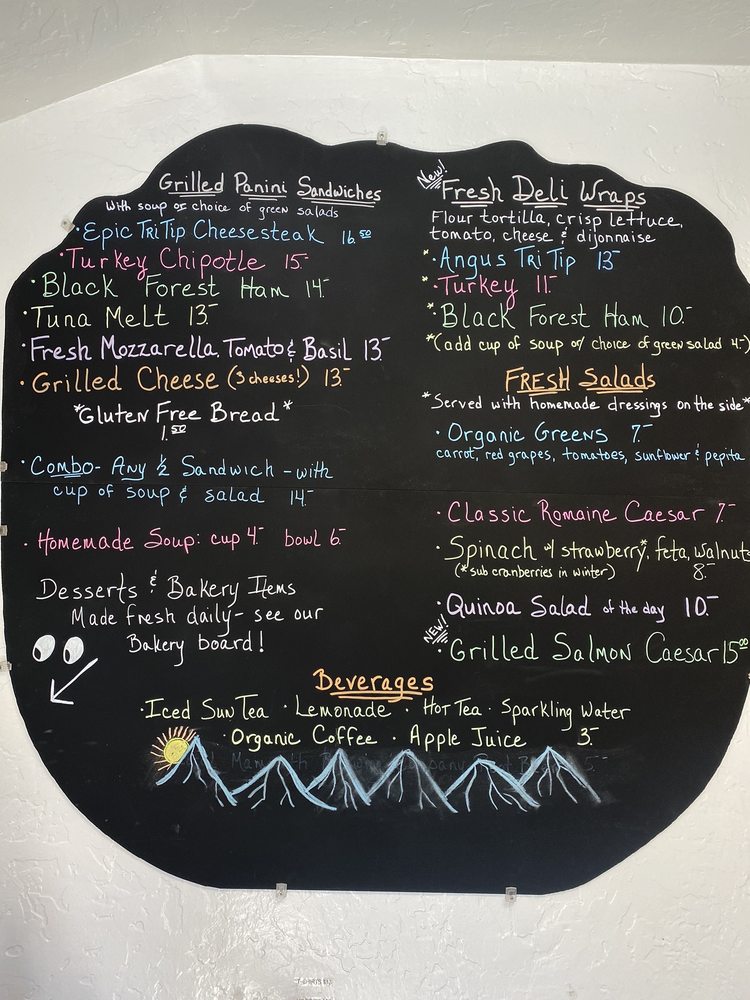 Grilled Panini Sandwiches
with soup or choice of green salads
· Epic TriTip Cheesesteak 16.50
· Turkey Chipotle 15.-
· Black Forest Ham 14.-
· Tuna Melt 13.-
· Fresh Mozzarella, Tomato & Basil 13.-
· Grilled Cheese (3 cheeses!) 13.-
*Gluten Free Bread*
1.50
· Combo - Any 1/2 Sandwich - with
cup of soup & salad 14.-
· Homemade Soup: cup 4.- bowl 6.-
Desserts & Bakery Items
Made fresh daily - see our
Bakery board!
New!
Fresh Deli Wraps
Flour tortilla, crisp lettuce,
tomato, cheese & dijonnaise
*· Angus Tri Tip 13.-
*· Turkey 11.-
*· Black Forest Ham 10.-
*(add cup of soup or choice of green salad 4.-)
FRESH Salads
*Served with homemade dressings on the side*
· Organic Greens 7.-
carrot, red grapes, tomatoes, sunflower & pepita
· Classic Romaine Caesar 7.-
· Spinach w/ strawberry*, feta, walnuts
(*sub cranberries in winter) 8.-
· Quinoa Salad of the day 10.-
NEW!
· Grilled Salmon Caesar 15.00
Beverages
· Iced Sun Tea · Lemonade · Hot Tea · Sparkling Water
· Organic Coffee · Apple Juice 3.-